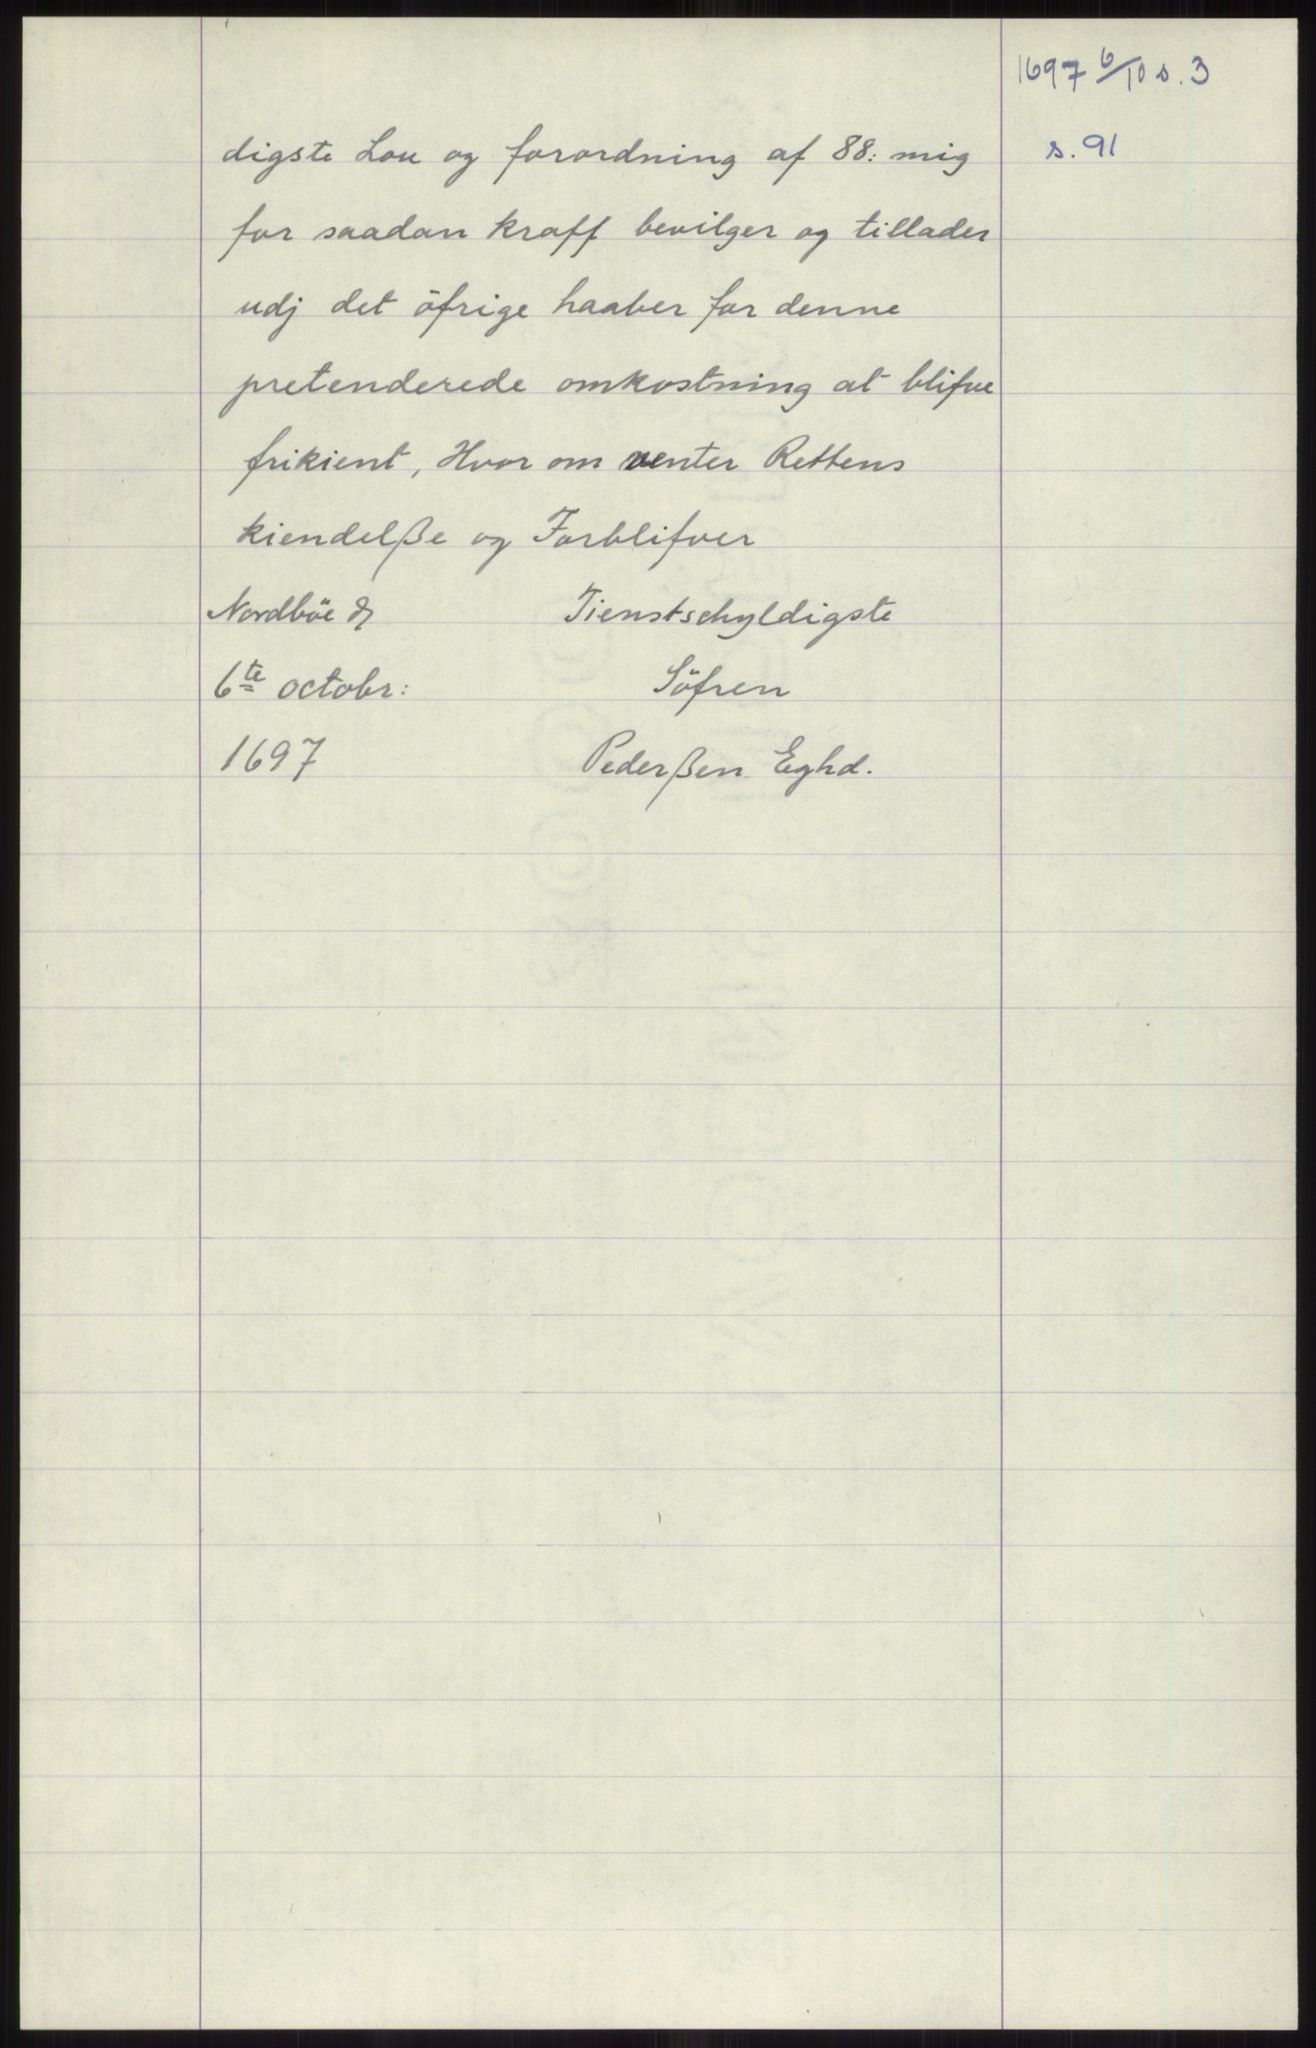 1697 6/10 s. 3
s. 91
digste Lou og forordning af 88: mig
for saadan kraff bevilger og tillader
udj det öfrige haaber for denne
pretenderede omkostning at blifve
frikient, Hvor om venter Rettens
kiendelße og Forblifver
Nordböe d
Tienstschyldigste
6te octobr:
Söfren
1697
Pederßen Eghd.